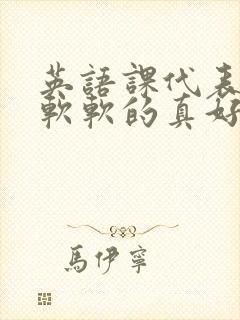 英語課代表
軟軟的真好
馬伊寧